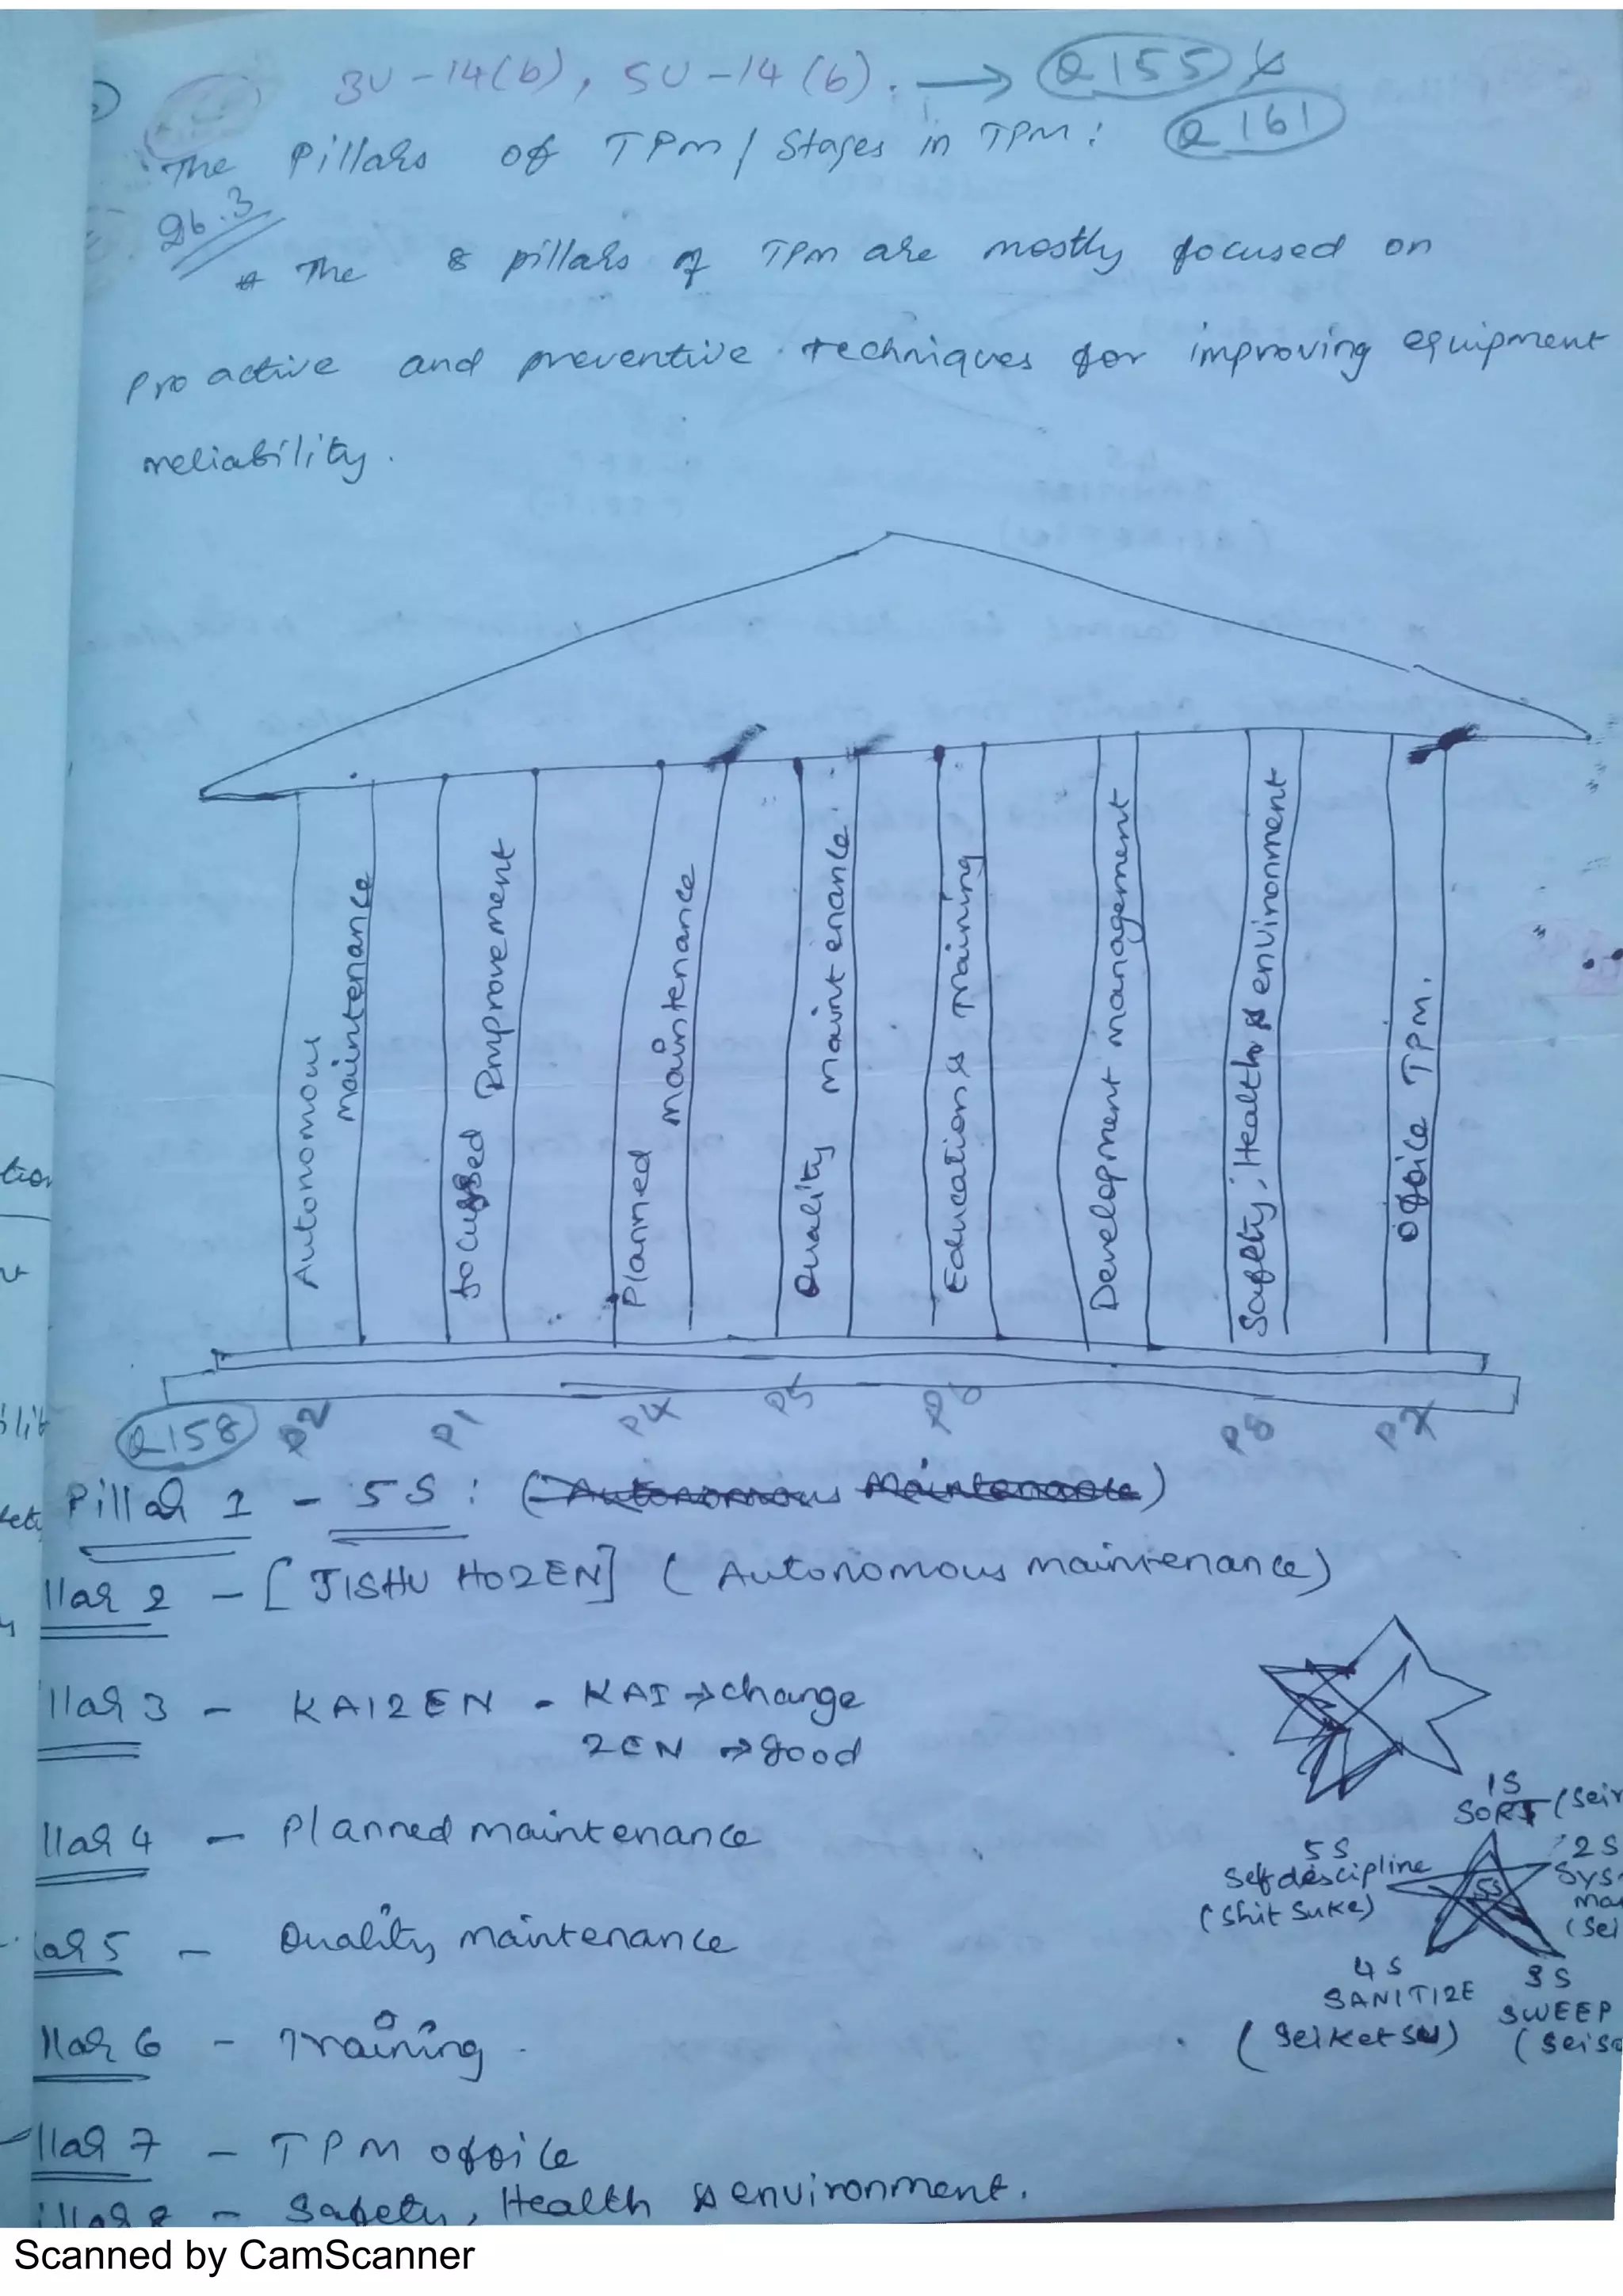 3U-14(b), 5U-14(b). → Q155
The Pillars of TPM / Stages in TPM: Q161
Qb.3
* The 8 pillars of TPM are mostly focused on
pro active and preventive techniques for improving equipment
reliability.
Autonomous maintenance
focussed Improvement
Planned maintenance
Quality maintenance
Education & Training
Development management
Safety, Health & environment
Office TPM.
Q158 P2 P1 P4 P5 P6 P8 P7
Pillar 1 - 5S : (Autonomous Maintenance)
llar 2 - [JISHU HOZEN] (Autonomous maintenance)
llar 3 - KAIZEN - KAI → change
ZEN → good
llar 4 - Planned maintenance
lar 5 - Quality maintenance
llar 6 - Training.
llar 7 - TPM office
illar 8 - Safety, Health & environment.
1S
SORT (Seir
5S
Self descipline
(Shit Suke)
5S
2S
Sys
ma
(Sei
4S
SANITIZE
(Seiketsu)
3S
SWEEP
(Seiso
Scanned by CamScanner